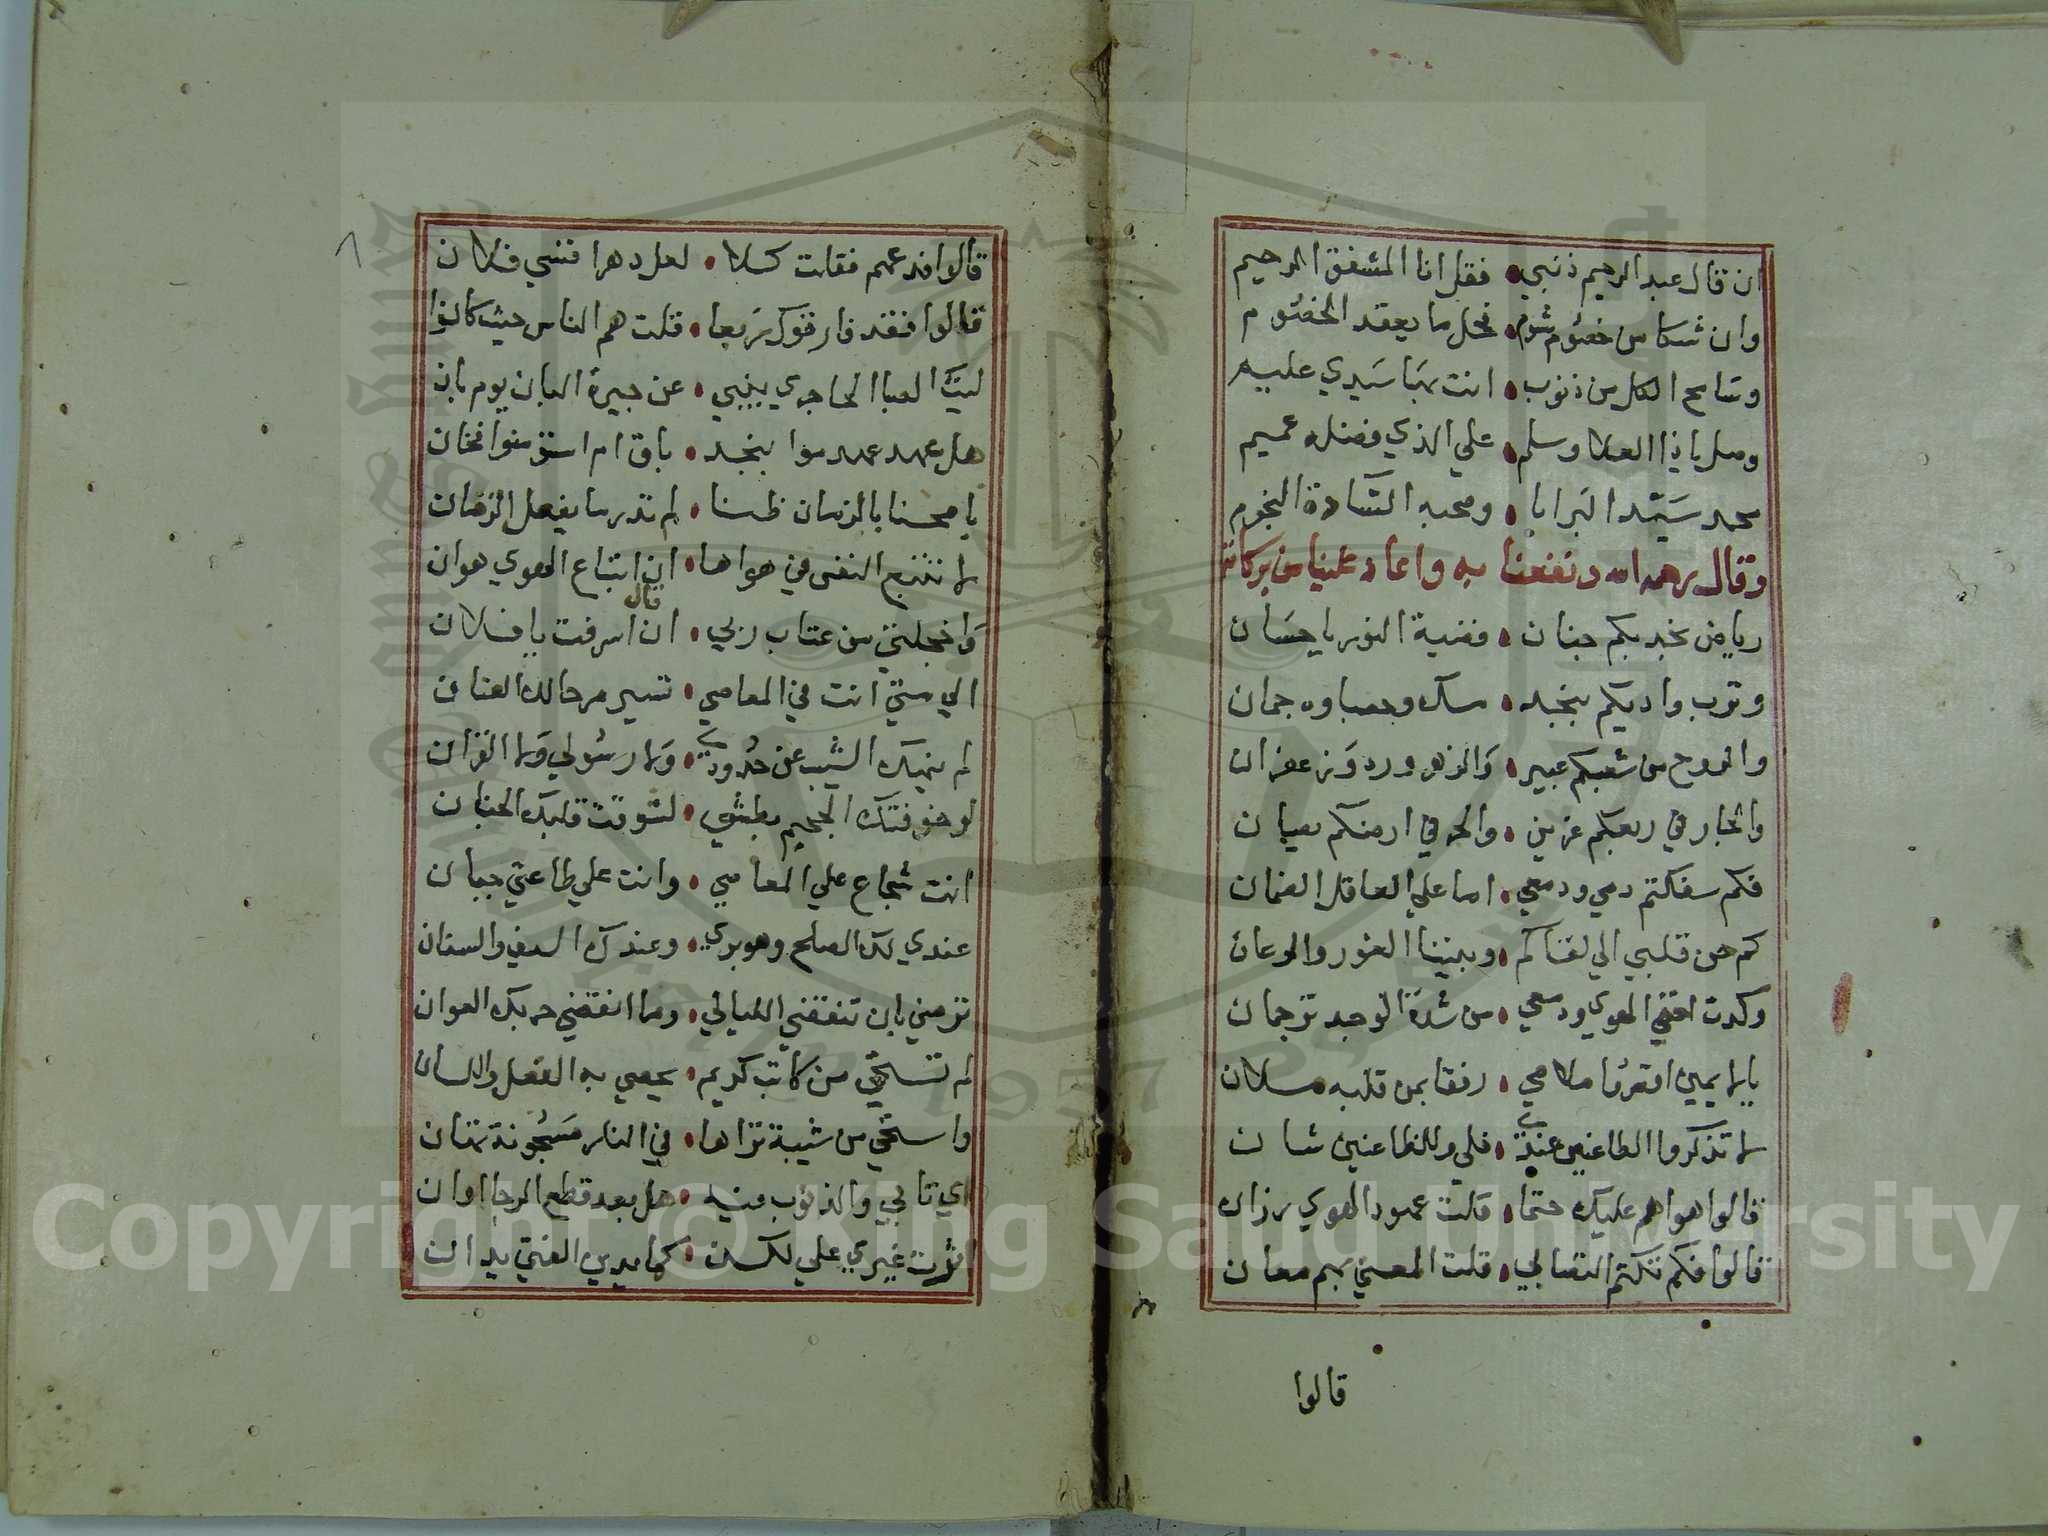 ان قال عبد الرحيم ذنبي • فقل انا المشفق الرحيم
وان شكا من خصوم شوم • فحل ما يعقد الخصوم
وسامح الكل من ذنوب • انت بها سيدي عليم
وصل ياذا العلا وسلم • علي الذي فضله عميم
محمد سيد البرايا • وصحبه السادة النجوم
وقال رحمه الله ونفعنا به واعاد علينا من بركاته
رياض نجد بكم جنان • ففيه النور يا حسان
وترب واديكم بنجد • مسك وحصباوه جمان
والدوح من شعبكم عبير • والزهر ورد وزعفران
والجار في ربعكم عزيز • والحر في ارضكم يصان
فكم سفكتم دمي ودمعي • اما علي العاقل الضمان
كم حن قلبي الي لقاكم • وبيننا الغور والرعان
وكدت اخفي الهوي ودمعي • من شدة الوجد ترجمان
يا لايمي اقصرا ملامي • رفقا بمن قلبه ملان
لا تذكروا الظاعنين عندي • فلي وللظاعنين شان
قالوا هواهم عليك حتما • قلت عمود الهوي رزان
قالوا فكم تكتم التصابي • قلت المعني بهم معان
قالوا
قالوا فدعهم فقلت كلا • لعل دهرا قسي فلان
قالوا فقد فارقوك ربعا • قلت هم الناس حيث كانوا
ليت الصبا الحاجري ينبي • عن جيرة البان يوم بانوا
هل عهد عهدموا بنجد • باق ام استومنوا فخان
يا محسنا بالزمان ظنا • لم تدر ما يفعل الزمان
لا تتبع النفس في هواها • ان اتباع الهوي هوان
واخجلتي من عتاب ربي • ان قال اسرفت يا فلان
الي متي انت في المعاصي • تسير مرحا لك العنان
لم ينهك الشيب عن حدودي • ولا رسولي ولا القران
لو خوفتك الجحيم بطشي • لشوقت قلبك الجنان
انت شجاع علي المعاصي • وانت علي طاعتي جبان
عندي لك الصلح وهو بري • وعندك السيف والسنان
ترضي بان تنقضي الليالي • وما انقضي حربك العوان
لم تستحي من كاتب كريم • يحصي به الفعل واللسان
واستحي من شيبة تراها • في النار مسجونة تهان
اي تابي والذنوب فيه • هل بعد قطع الرجا اوان
اثرت غيري علي لكن • كما يدين الفتي يدان